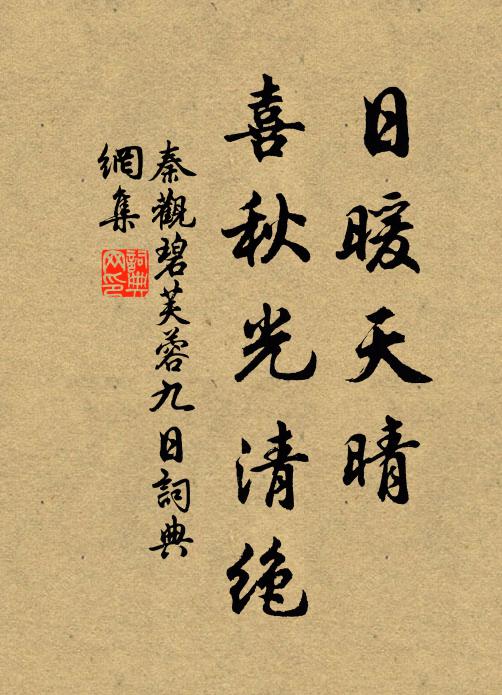 日暖天晴
喜秋光清絶
秦觀碧芙蓉九日詞典
網集
詞典
网印